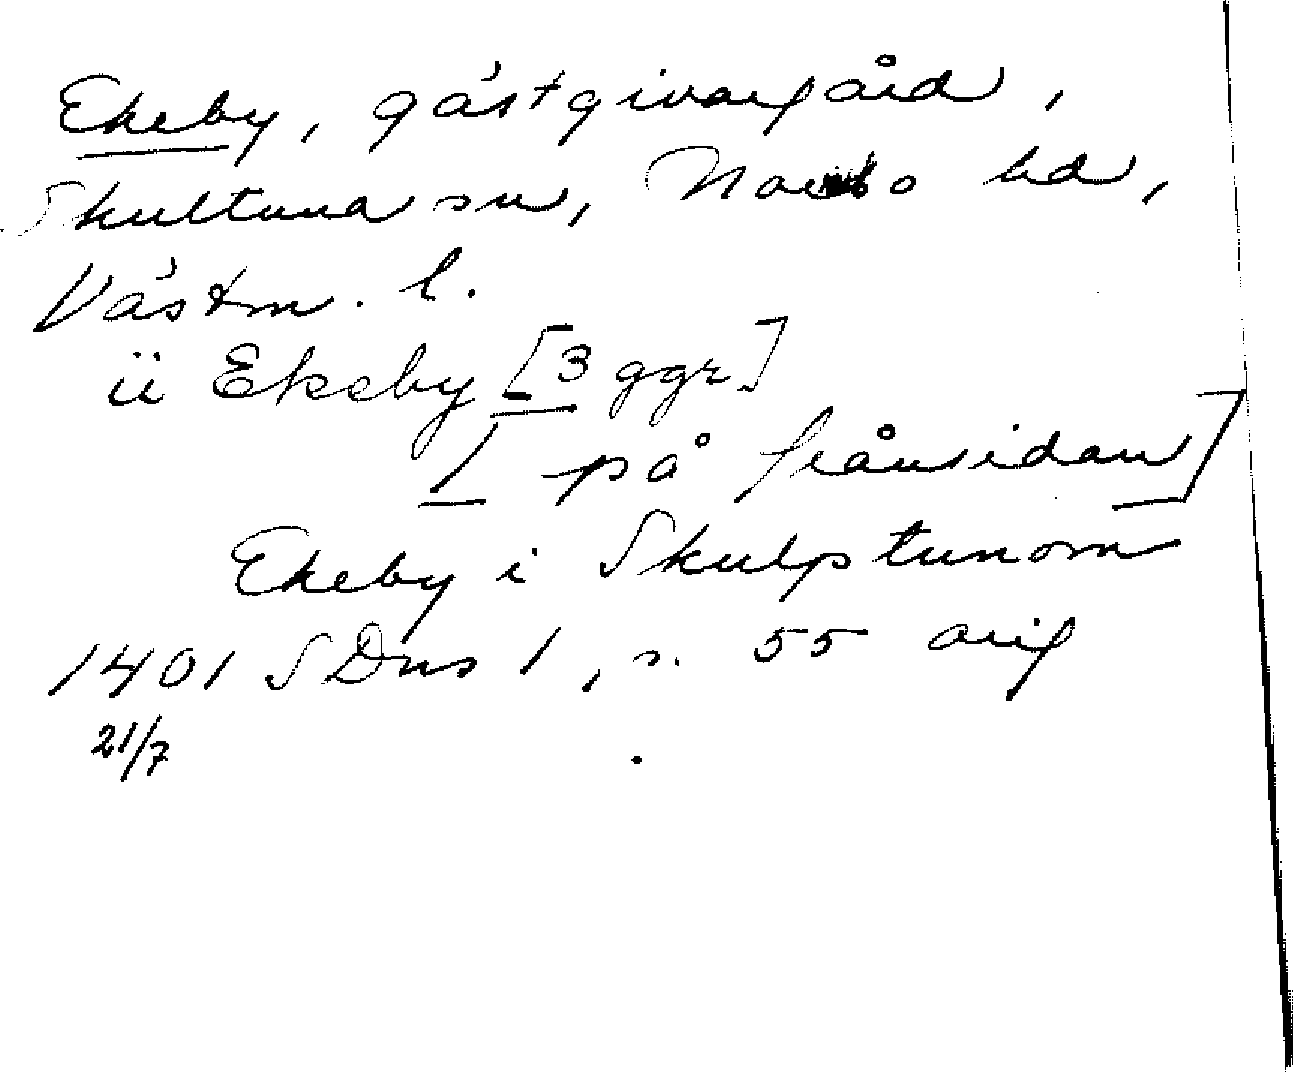 Ekeby, gästgivargård,
Skultuna sn, Norrbo hd,
Västm. l.
ii Ekeby [3 ggr]
[ på frånsidan]
Ekeby i Skulptunom
1401 SDns 1, s. 55 orig
21/7